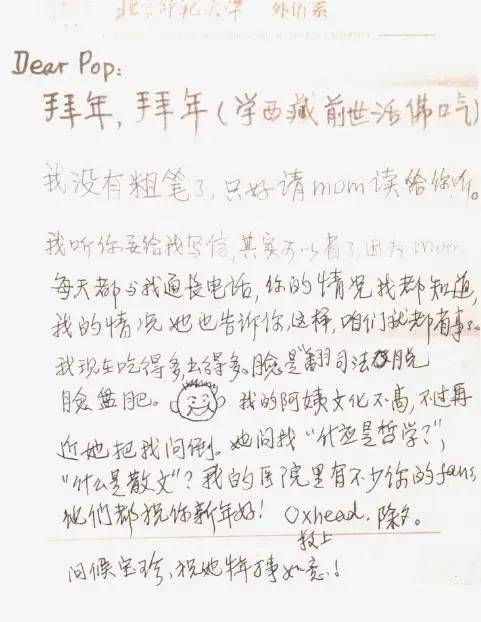 北京师范大学 外语系
Dear Pop:
拜年,拜年(学西藏前世活佛口气)
我没有粗笔了,只好请mom读给你听。
我听你要给我写信,其实可以省了,因为mom
每天都与我通长电话,你的情况我都知道,
我的情况她也告诉你,这样,咱们就都省事了。
我现在吃得多,出得多。脸是“翻司法脱
脸盘肥。 我的阿姨文化不高,不过再
近她把我问倒。她问我“什么是哲学?”,
“什么是散文”?我的医院里有不少你的fans,
他们都祝你新年好! Oxhead. 除夕。
敬上
问候宝珍,祝她牛年事如意!